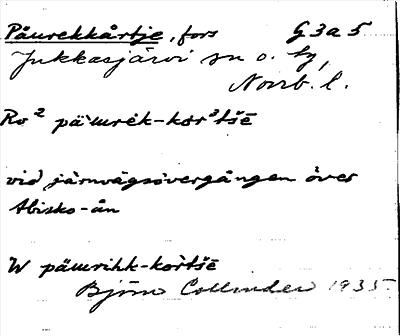 Päurekkårtje, fors G 3 a 5
Jukkasjärvi sn o. tg,
Norrb. l.
Ro² pä̀urėk-kor²tšē
vid järnvägsövergången över
Abisko-ån
W päurihk-kòr̀tšē
Björn Collinder 1935.